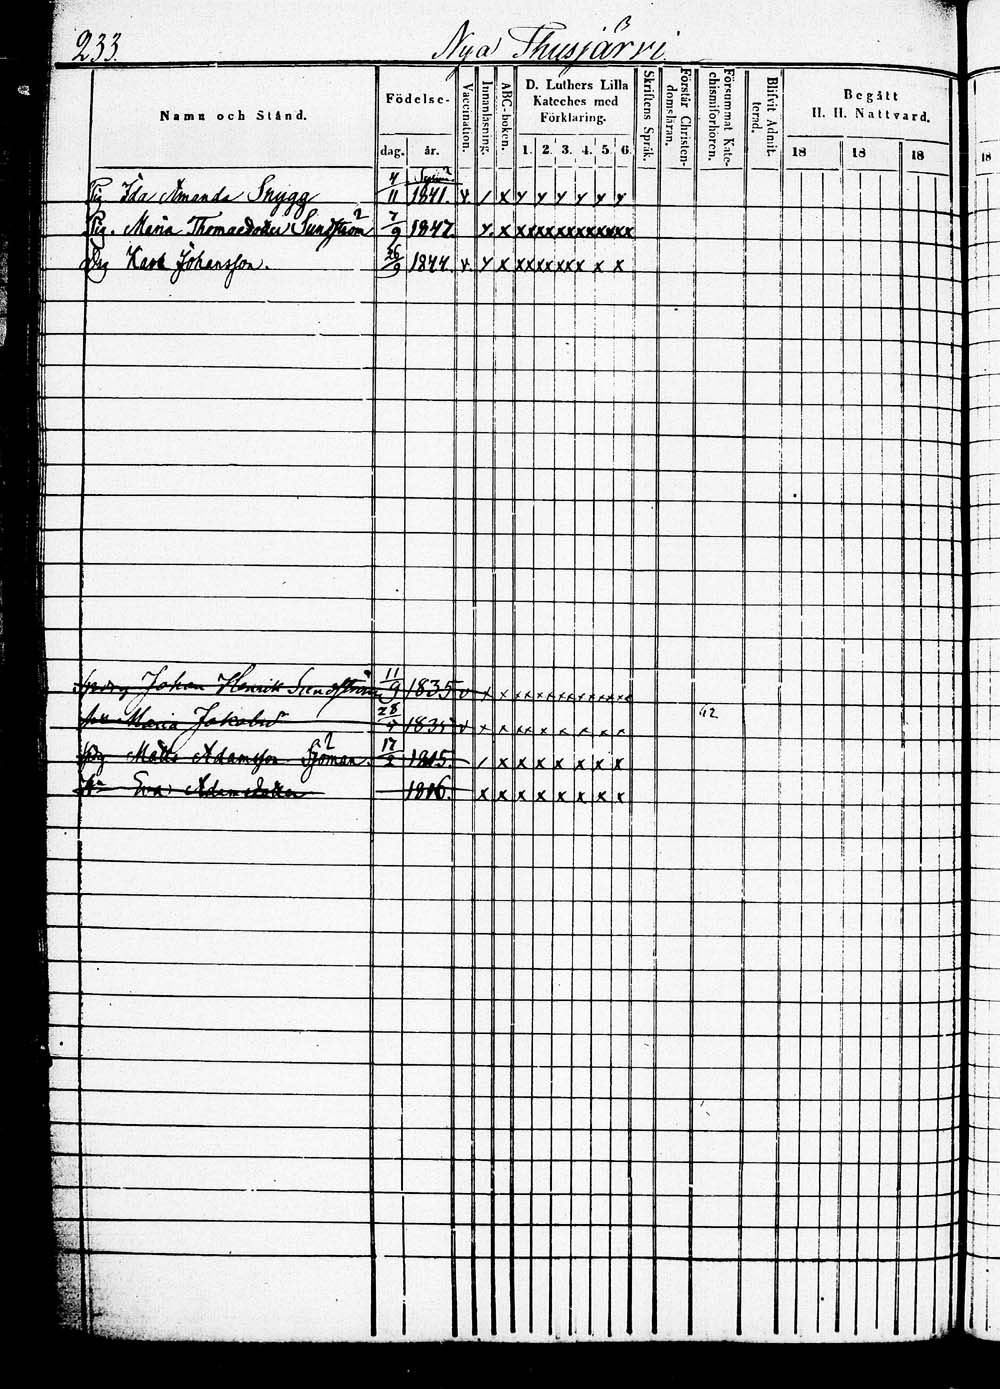 233.
Nya Thusjärvi.
Namn och Stånd.
Födelse-
dag. år.
Vaccination.
Innanläsning.
ABC-boken.
D. Luthers Lilla
Kateches med
Förklaring.
1. 2. 3. 4. 5. 6.
Skriftens Språk.
Förstår Christen-
domsläran.
Försummat Kate-
chismiförhören.
Blifvit Admit-
terad.
Begått
H. H. Nattvard.
18 18 18
18
Pig. Ida Amanda Snygg 4/11 1841. v / x y y y y y y
Pig. Maria Thomasdotter Sundström 7/9 1847. y. x xxxxxxxxxxxx
Drg Karl Johansson. 26/9 1844. v. y x xxxxxxx x x
Johan Henrik Sundström 11/9 1835 v x x x x x x x x x x x x x
Maria Jakobsd 28/ x x xx x x x x x
62
Matts Adamsson Sjöman. 17/2 1815. / x x x x x x x
Eva Adamsdotter 1816. x x x x x x x x